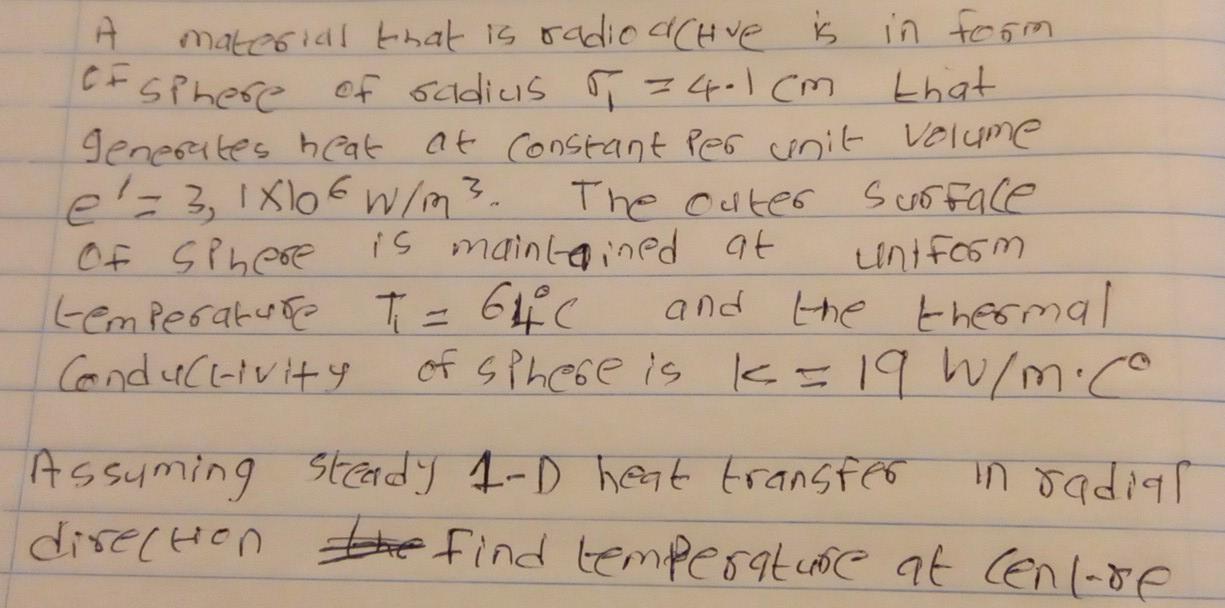 A material that is radioactive is in form
of sphere of radius r₁ = 4.1 cm that
generates heat at constant per unit volume
e' = 3,1X10⁶ W/m³. The outer surface
of sphere is maintained at uniform
temperature T₁ = 64°C and the thermal
conductivity of sphere is k = 19 W/m.C°
Assuming steady 1-D heat transfer in radial
direction the find temperature at centre